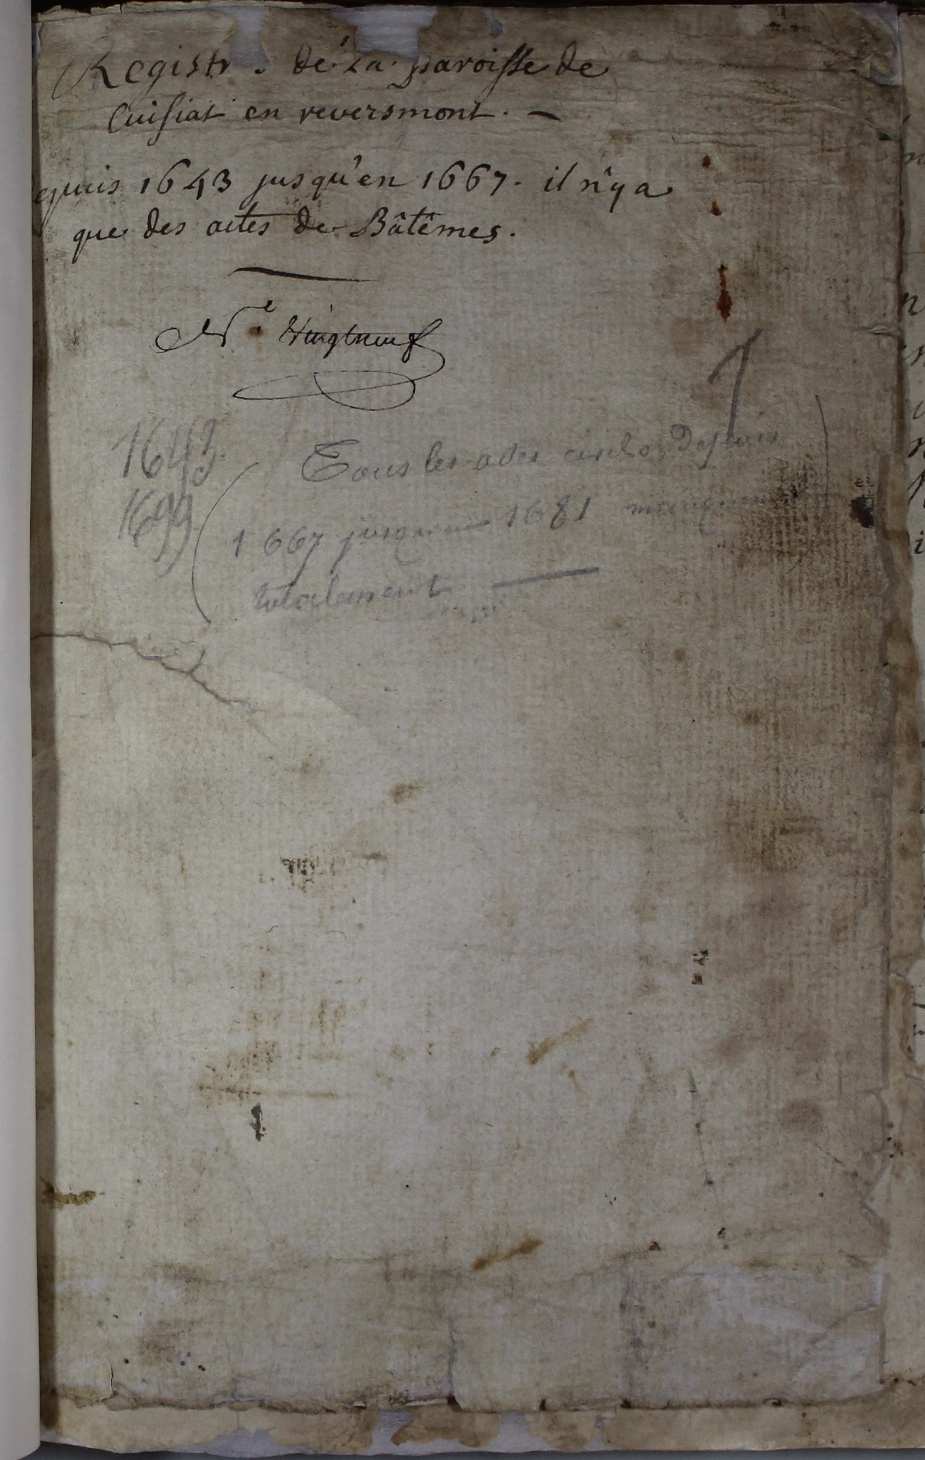 Registr. de La paroisse de
Cuisiat en reversmont. —
epuis 1643 jusqu'en 1667. il n'y a
que des actes de Bâtêmes.
Ne vingtneuf
1
1643.
1699
(Tous les actes civils Depuis
1667 jusqu'en 1681 manquent)
totalement —